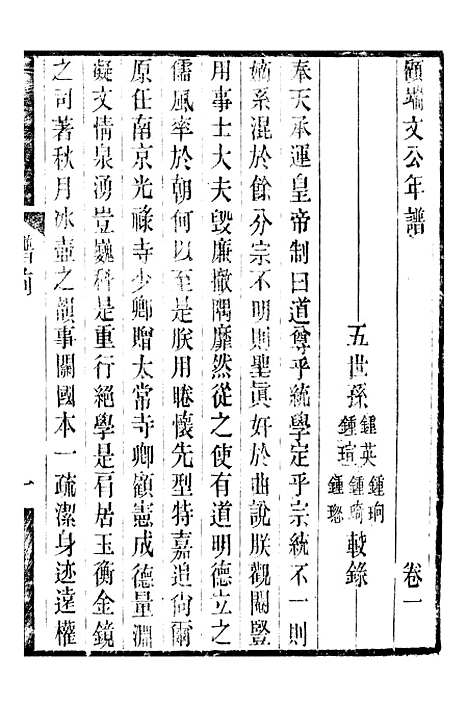 顧端文公年譜 卷一
五世孫 鍾英 鍾珦 鍾琦 鍾瑄 鍾璁 較錄
奉天承運皇帝制曰道尊乎統學定乎宗統不一則
嫡系混於餘分宗不明則聖眞奸於曲說朕觀閹豎
用事士大夫毀廉撤隅靡然從之使有道明德立之
儒風率於朝何以至是朕用睠懷先型特嘉追尙爾
原任南京光祿寺少卿贈太常寺卿顧憲成德量淵
凝文情泉湧豈巍科是重行絕學是肩居玉衡金鏡
之司著秋月冰壺之韻事關國本一疏潔身迹遠權
譜前
一